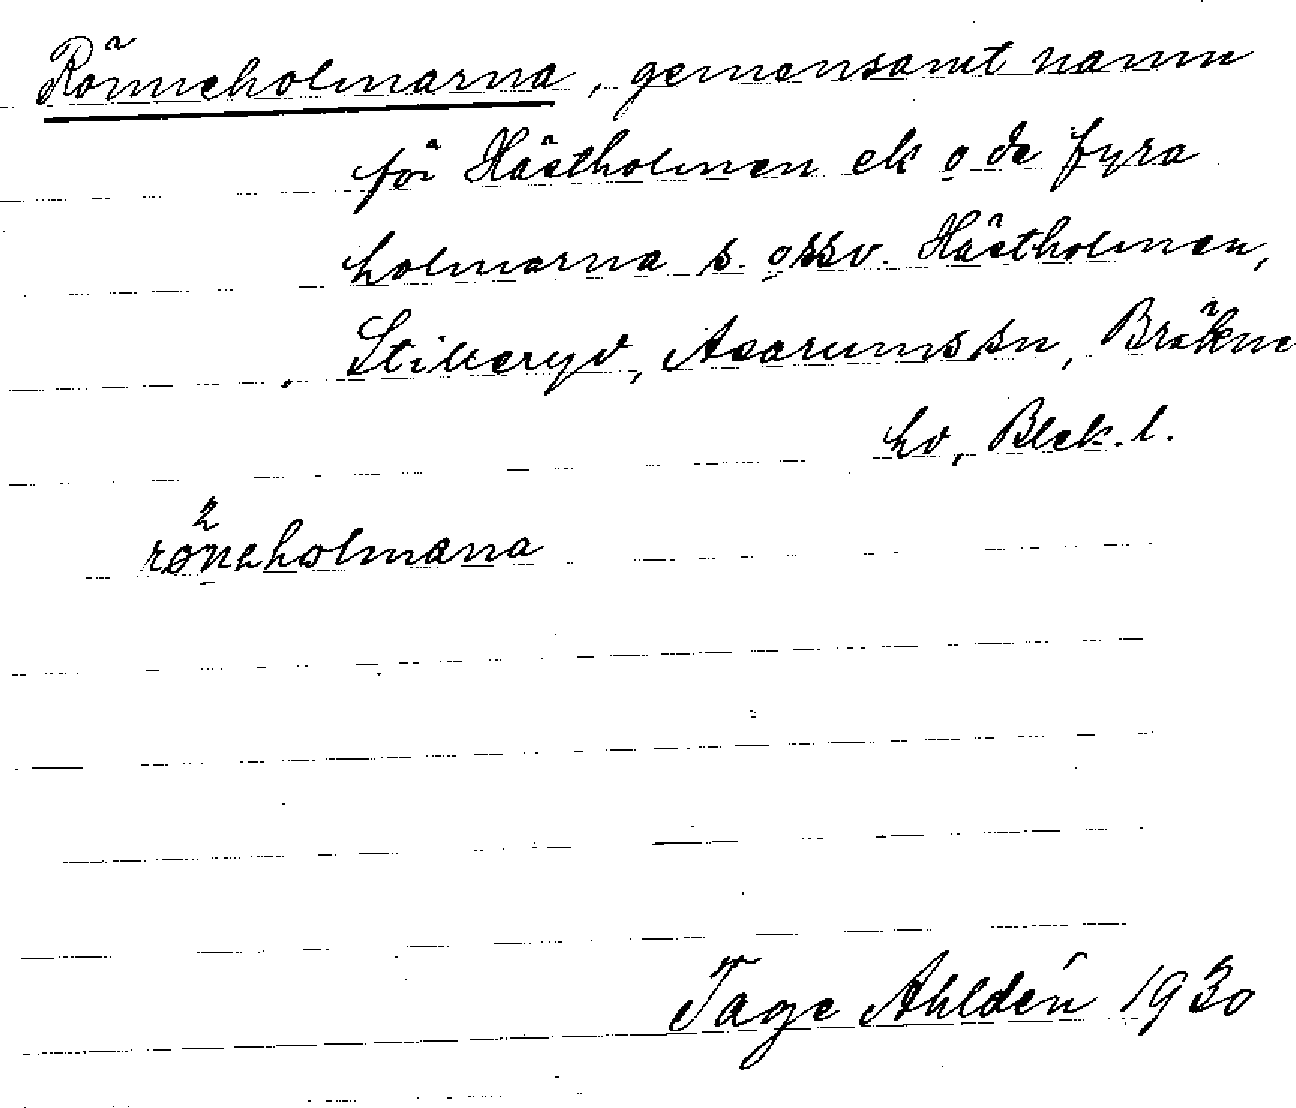 Rönneholmarna, gemensamt namn
för Hästholmen ek o de fyra
holmarna s. o ssv. Hästholmen,
Stilleryd, Asarums sn, Bräkne
hd, Blek. l.
2
røneholmana
Tage Ahldén 1930